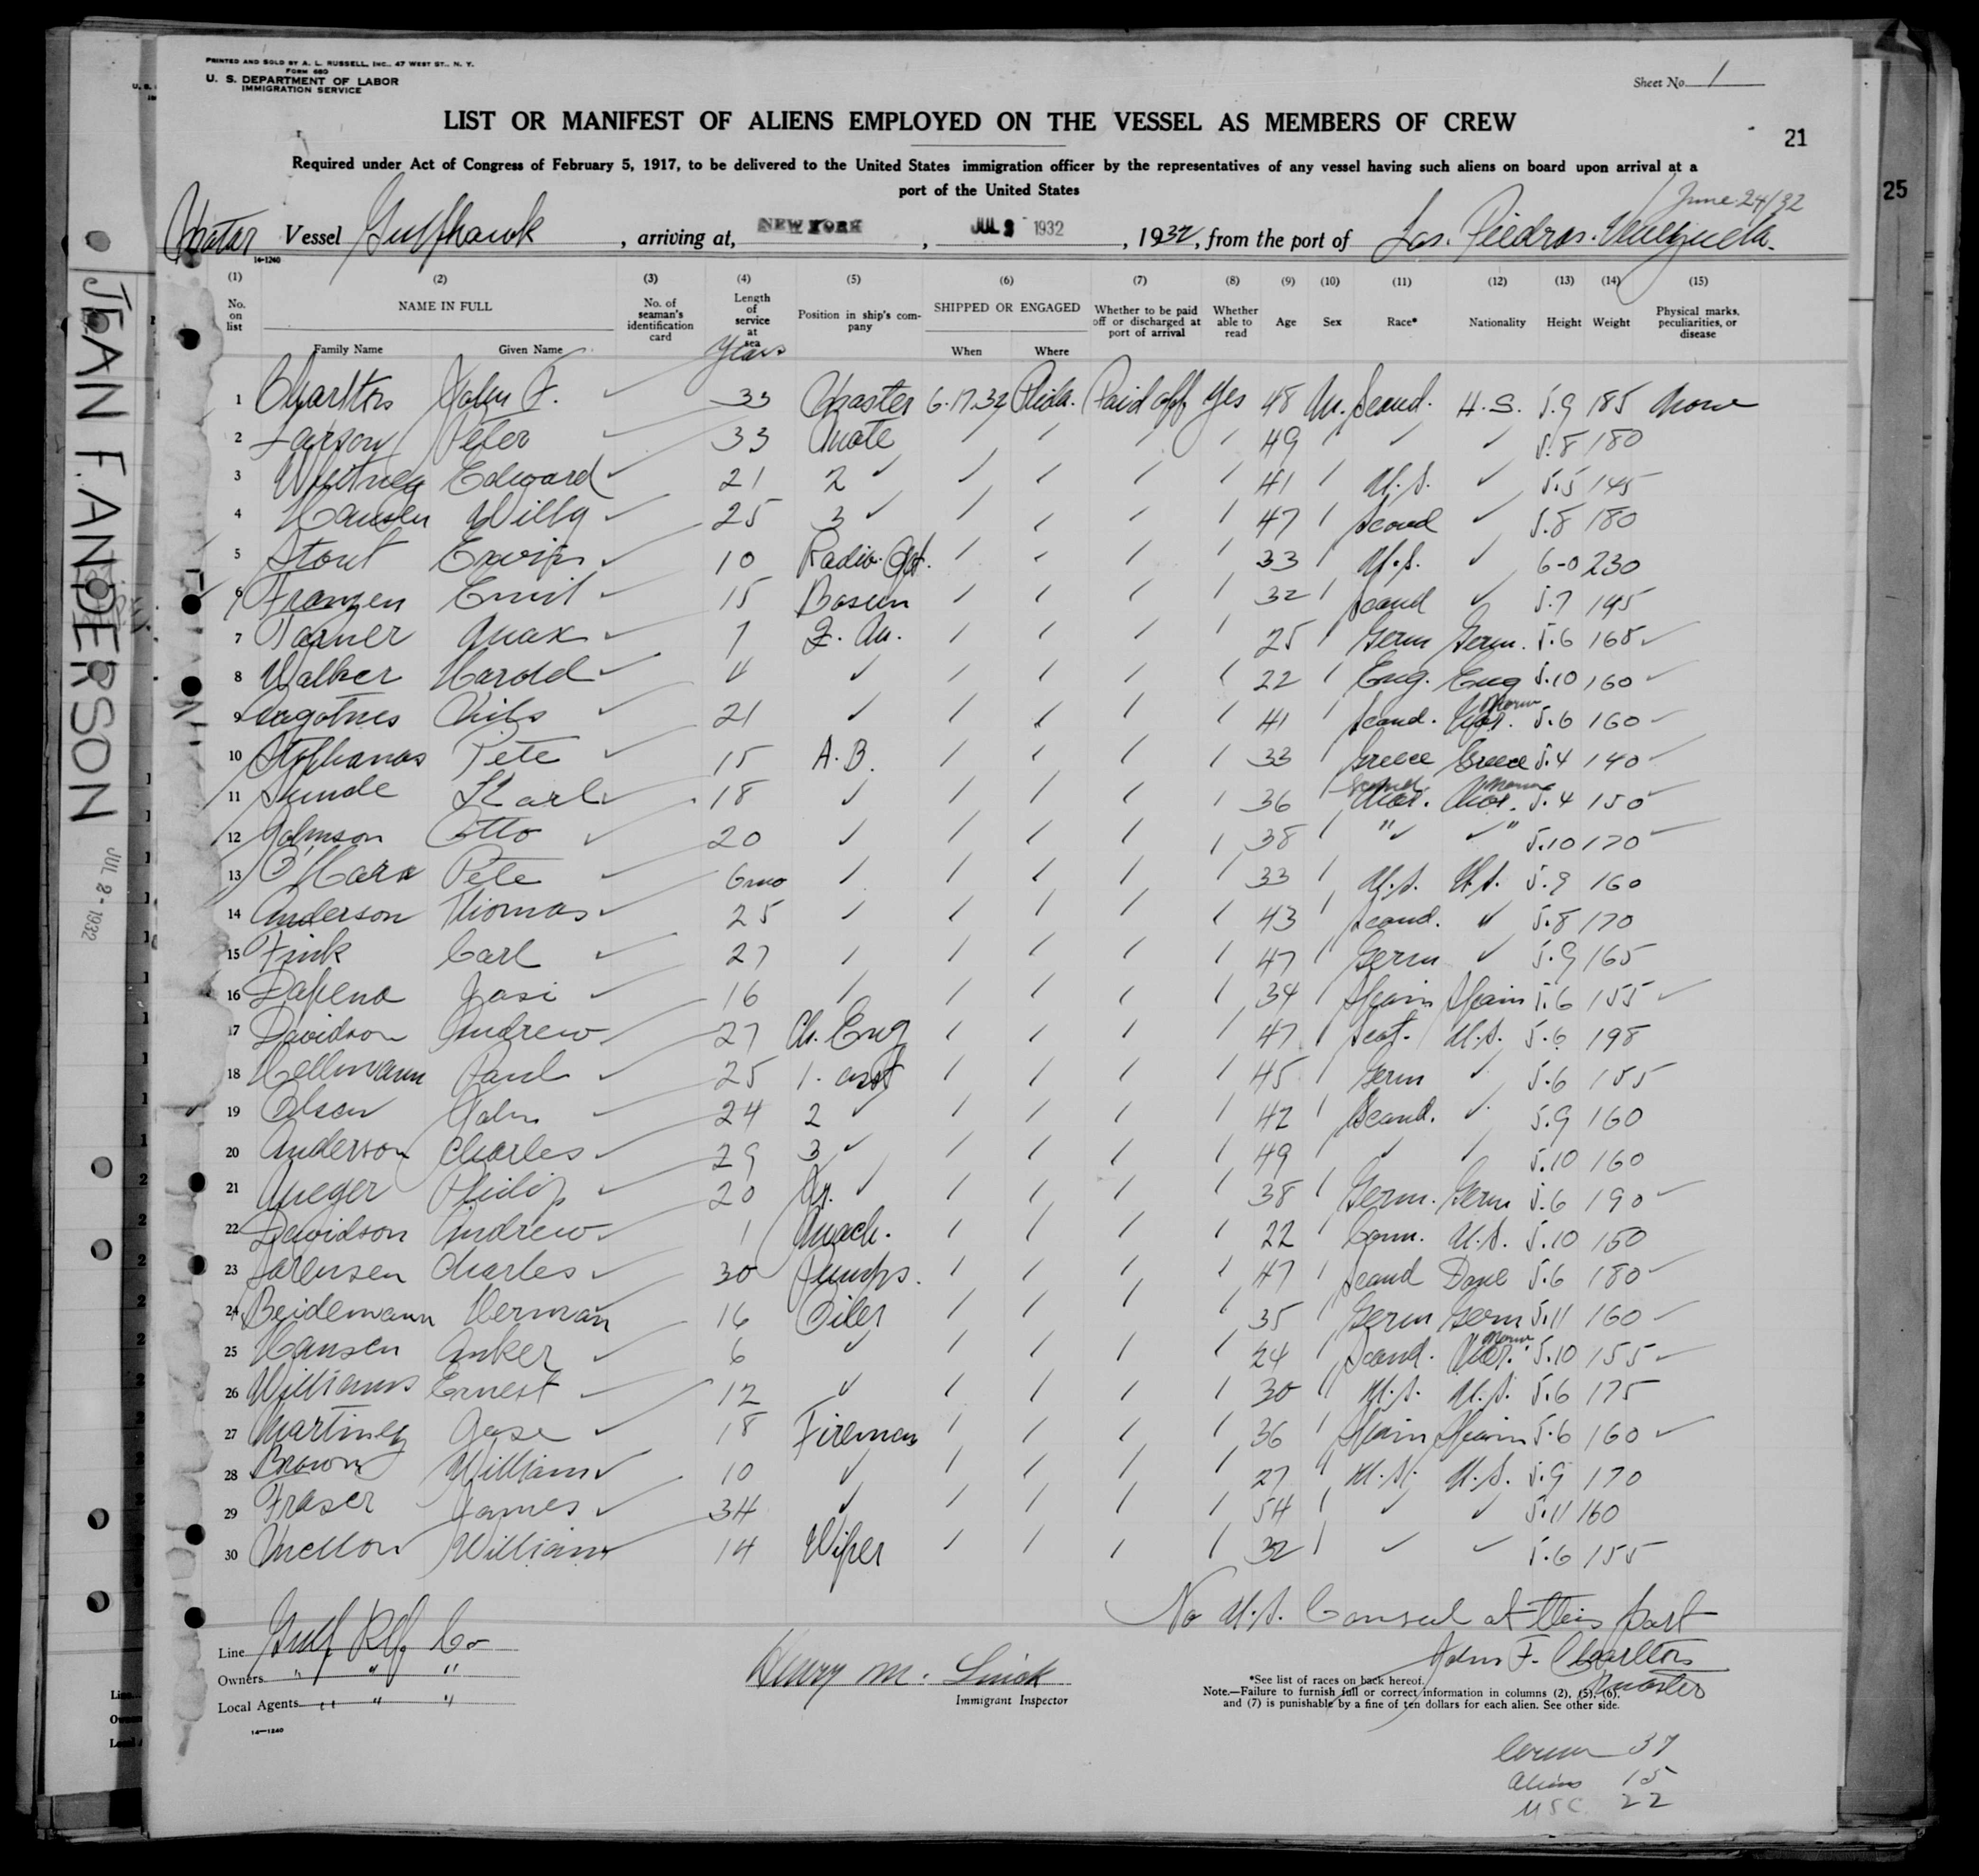 PRINTED AND SOLD BY A. L. RUSSELL, INC., 47 WEST ST., N. Y.
FORM 680
U. S. DEPARTMENT OF LABOR
IMMIGRATION SERVICE
Sheet No. 1
LIST OR MANIFEST OF ALIENS EMPLOYED ON THE VESSEL AS MEMBERS OF CREW
21
25
Required under Act of Congress of February 5, 1917, to be delivered to the United States immigration officer by the representatives of any vessel having such aliens on board upon arrival at a
port of the United States
June 24/32
Vessel Gulfhawk, arriving at, NEW YORK, JUL 2 1932, 1932, from the port of Las. Piedras. Venezuela.
14-1240
(1) (2) (3) (4) (5) (6) (7) (8) (9) (10) (11) (12) (13) (14) (15)
No. on list NAME IN FULL Family Name Given Name No. of seaman's identification card Length of service at sea Years Position in ship's company SHIPPED OR ENGAGED When Where Whether to be paid off or discharged at port of arrival Whether able to read Age Sex Race* Nationality Height Weight Physical marks, peculiarities, or disease
1 Charlton John F. ✓ 33 Master 6.17.32 Phila. Paid off yes 48 M. Scand. U.S. 5.9 185 None
2 Larson Peter ✓ 33 Mate / / / / 49 / ✓ ✓ 5.8 180
3 Whitney Edward ✓ 21 2 ✓ / / / / 41 / U.S. ✓ 5.5 145
4 Hansen Willy ✓ 25 3 ✓ / / / / 47 / Scand ✓ 5.8 180
5 Stout Ervin ✓ 10 Radio. Opt. / / / / 33 / U.S. ✓ 6-0 230
6 Franzen Emil ✓ 15 Bosun / / / / 32 / Scand ✓ 5.7 195
7 Max ✓ 7 Q. M. / / / / 25 / Germ Germ. 5.6 165 ✓
8 Walker Harold ✓ 4 ✓ / / / / 22 / Eng. Eng 5.10 160 ✓
9 Nils ✓ 21 ✓ / / / / 41 / Scand. Nor. Norw 5.6 160 ✓
10 Stephanos Pete ✓ 15 A.B. / / / / 33 / Greece Greece 5.4 140 ✓
11 Sunde Karl ✓ 18 ✓ / / / / 36 / Scand Nor. Nor. 5.4 150 ✓
12 Johnson Otto ✓ 20 ✓ / / / / 38 / " ✓ ✓ " 5.10 170 ✓
13 O'Hara Pete ✓ 6 mo / / / / / 33 / U.S. U.S. 5.9 160
14 Anderson Thomas ✓ 25 / / / / / 43 / Scand. " 5.8 170
15 Fink Carl ✓ 27 / / / / / 47 / Germ ✓ 5.9 165
16 Dapena Josi ✓ 16 / / / / / 34 / Spain Spain 5.6 155 ✓
17 Davidson Andrew ✓ 27 Ch. Eng / / / / 47 / Scot. U.S. 5.6 198
18 Hellmann Paul ✓ 25 1. asst / / / / 45 / Germ ✓ 5.6 155
19 Olsen John ✓ 24 2 ✓ / / / / 42 / Scand. ✓ 5.9 160
20 Anderson Charles ✓ 29 3 ✓ / / / / 49 / ✓ / 5.10 160
21 Philip ✓ 20 Jr. ✓ / / / / 38 / Germ. Germ 5.6 190 ✓
22 Davidson Andrew ✓ 1 Mach. / / / / 22 U.S. 5.10 150
23 Charles ✓ 30 Pumps. / / / / 47 / Scand Dane 5.6 180 ✓
24 Beidemann Herman ✓ 16 Oiler / / / / 35 / Germ Germ 5.11 160 ✓
25 Hansen Anker ✓ 6 ✓ / / / / 24 / Scand. Nor. Norw 5.10 155 ✓
26 Williams Ernest ✓ 12 ✓ / / / / 30 / U.S. U.S. 5.6 175
27 Martinez Jose ✓ 18 Fireman / / / / 36 / Spain Spain 5.6 160 ✓
28 Brown William ✓ 10 ✓ / / / / 27 / U.S. U.S. 5.9 170
29 Fraser James ✓ 34 ✓ / / / / 54 / ✓ ✓ 5.11 160
30 William 14 Wiper / / / / 32 / ✓ ✓ 5.6 155
No U.S. Consul at this port
John F. Charlton
Master
Line Gulf Rfg Co
Owners " " "
Local Agents " " "
14-1240
Henry M.
Immigrant Inspector
*See list of races on back hereof.
Note.—Failure to furnish full or correct information in columns (2), (5), (6),
and (7) is punishable by a fine of ten dollars for each alien. See other side.
37
Aliens 15
USC 22
JEAN F. ANDERSON
JUL 2 - 1932